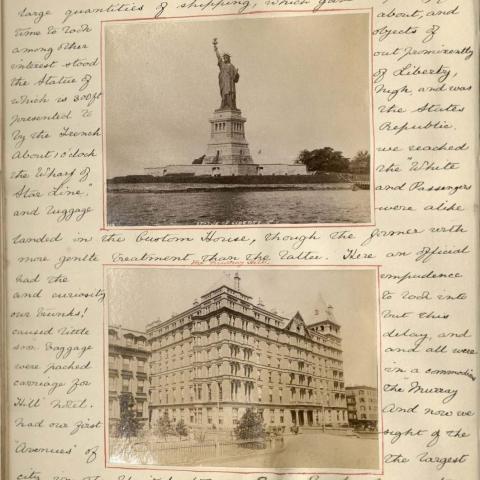 large quantities of shipping, which gave
time to look about, and
among other objects of
interest stood out prominently
the Statue of of Liberty,
which is 300 ft high and was
presented to the States
by the French Republic.
About 1 o'clock we reached
the Wharf of the "White
Star Line," and Passengers
and luggage were alike
landed in the Custom House, though the former with
more gentle treatment than the latter. Here an official
The Murray Hill.
had the impudence
and curiosity to look into
our trunks! but this
caused little delay, and
soon baggage and all were
were packed in a commodious
carriage for the Murray
Hill hotel. And now we
had our first sight of the
"Avenues" of the largest